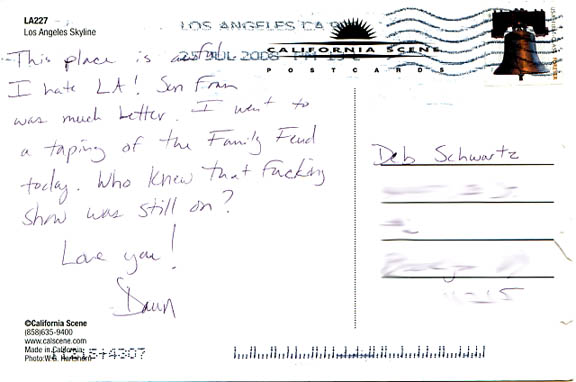 LA227
Los Angeles Skyline
LOS ANGELES CA
25 JUL 2008 PM
CALIFORNIA SCENE
POSTCARDS
This place is awful
I hate LA! San Fran
was much better. I went to
a taping of the Family Feud
today. Who knew that Fucking
show was still on?
Love you!
Dawn
Deb Schwartz
©California Scene
(858)635-9400
www.calscene.com
Made in California
Photo:W.G. Hartshorn
+4307